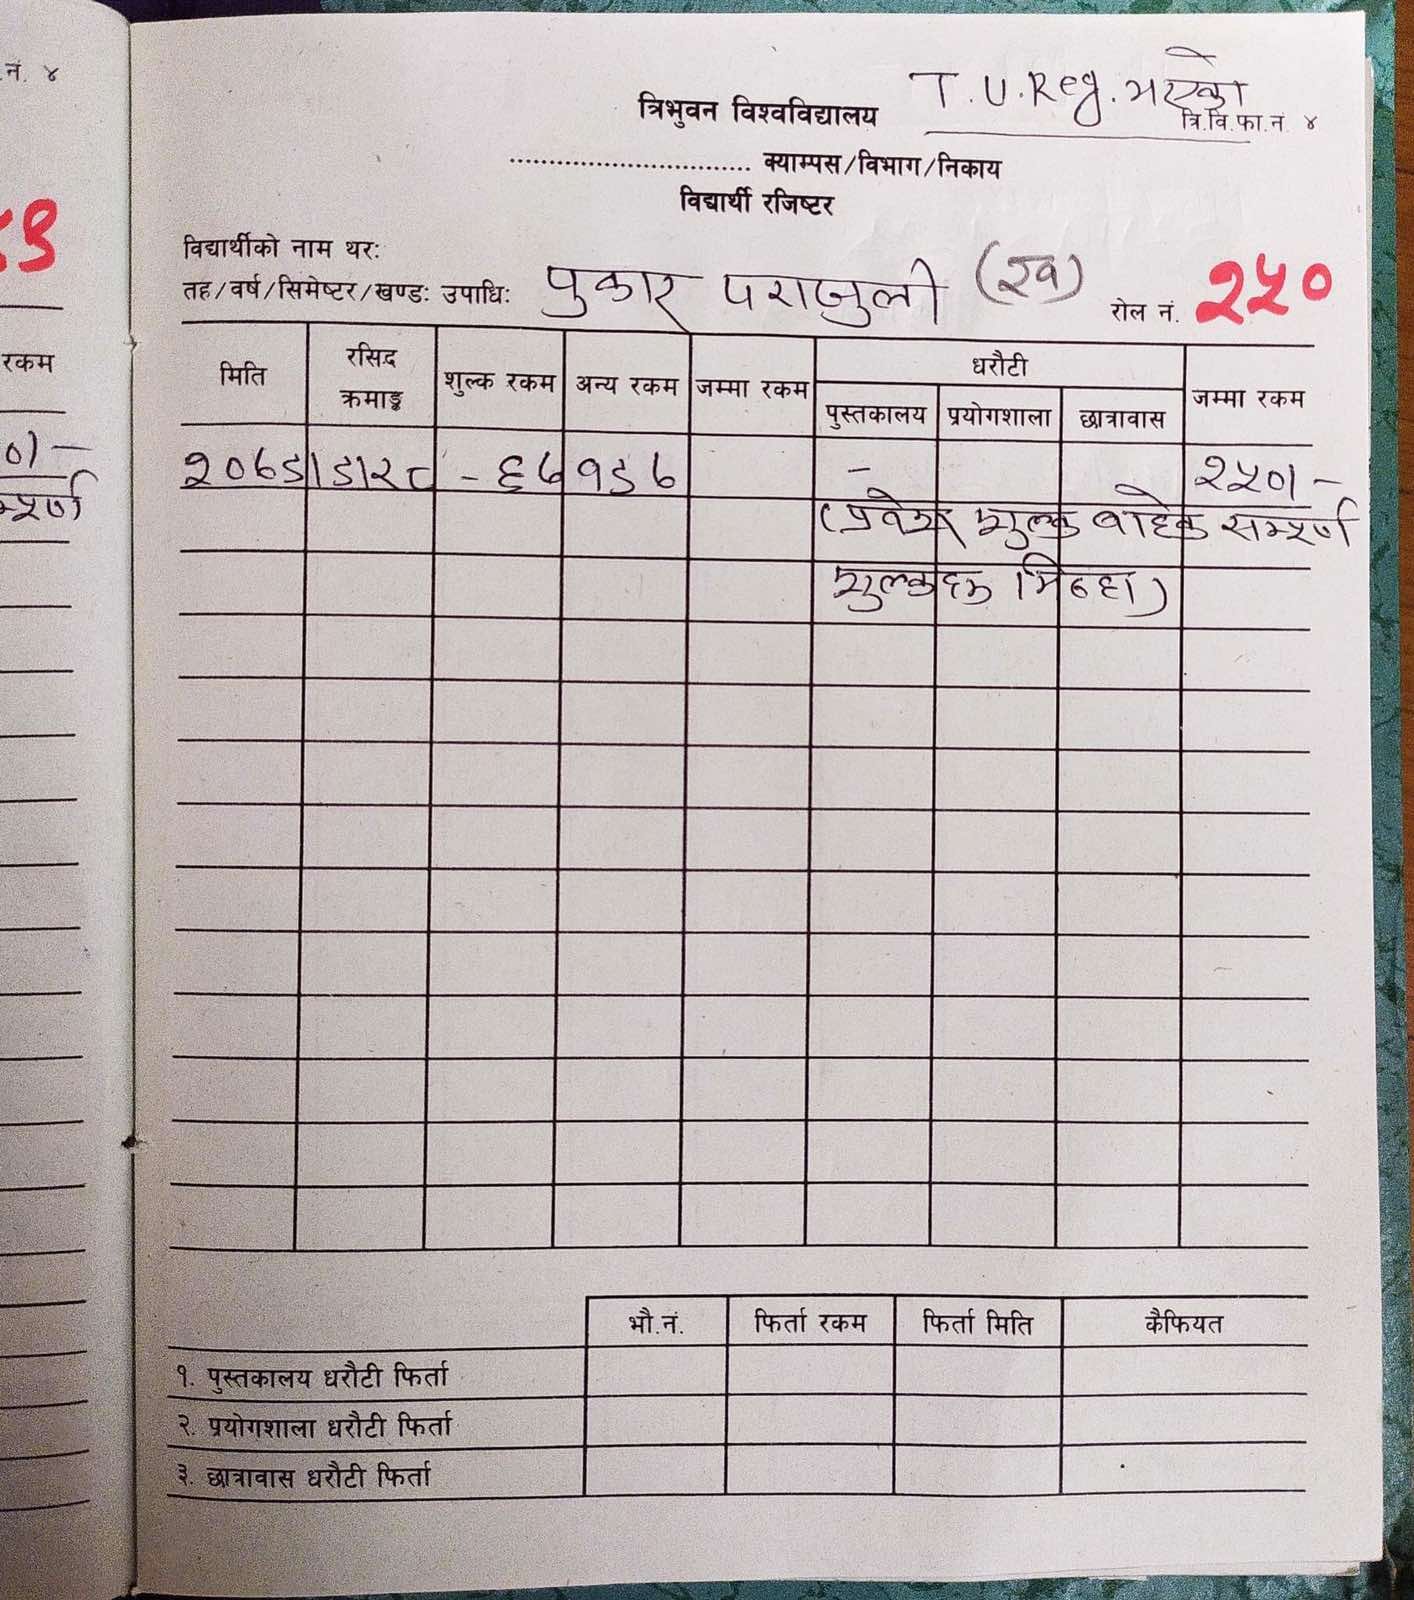 .नं. ४
T.U.Reg. भएको
त्रिभुवन विश्वविद्यालय
त्रि.वि.फा.नं. ४
.............................. क्याम्पस/विभाग/निकाय
विद्यार्थी रजिष्टर
विद्यार्थीको नाम थर:
तह/वर्ष/सिमेष्टर/खण्ड: उपाधि: पुकार पराजुली (ख) रोल नं. २५०
रकम
मिति रसिद क्रमाङ्क शुल्क रकम अन्य रकम जम्मा रकम धरौटी जम्मा रकम
पुस्तकालय प्रयोगशाला छात्रावास
२०७८।८।२८ - ६७१८७ - २५०।-
०।-
(प्रवेश शुल्क बाहेक सम्पूर्ण
म्पूर्ण
शुल्कहरु मिनाहा)
भौ.नं. फिर्ता रकम फिर्ता मिति कैफियत
१. पुस्तकालय धरौटी फिर्ता
२. प्रयोगशाला धरौटी फिर्ता
३. छात्रावास धरौटी फिर्ता